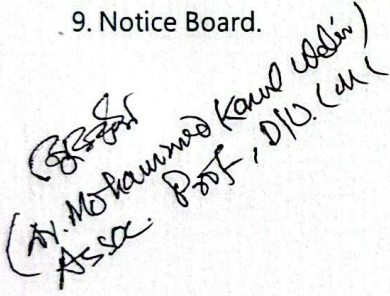 9. Notice Board.
(Dr. Mohammed Kamal Uddin)
Assoc. Prof, D/O.